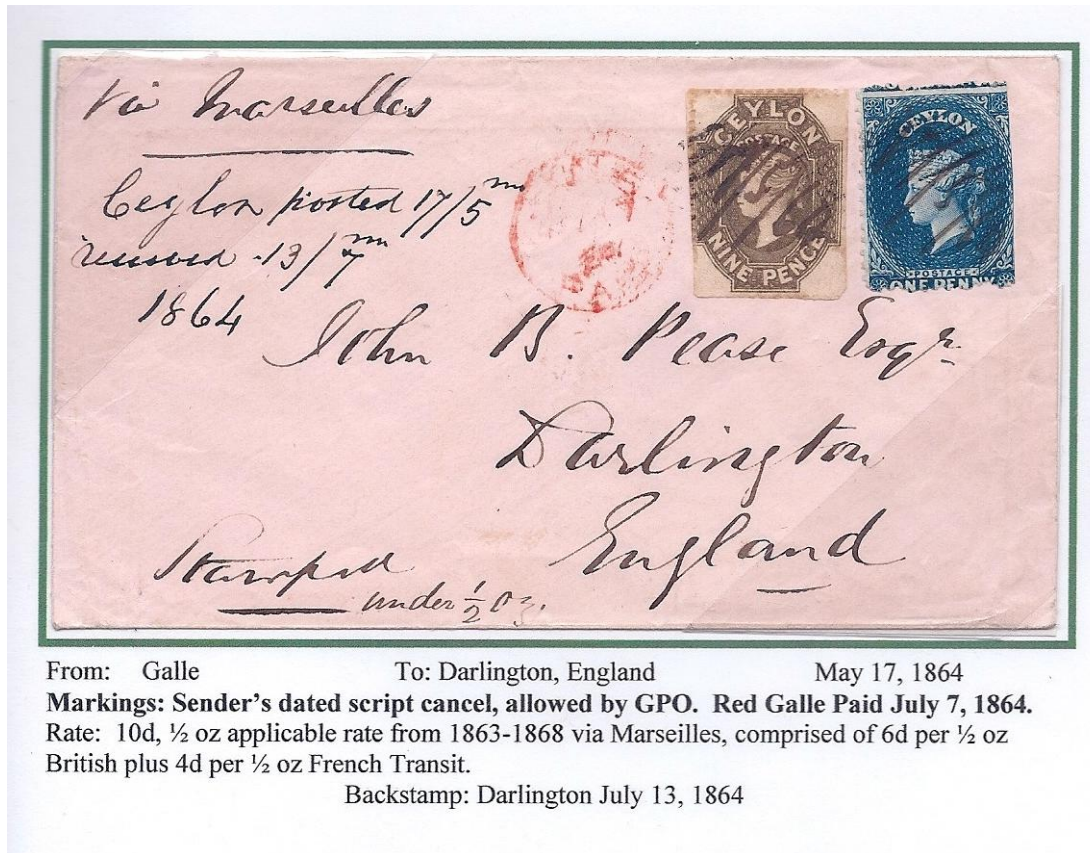 Via Marseilles
Ceylon posted 17/5 mo
received 13/7 mo
1864
CEYLON
POSTAGE
NINE PENCE
CEYLON
POSTAGE
ONE PENNY
John B. Pease Esqr.
Darlington
England
Stamped
under ½ oz.
From: Galle To: Darlington, England May 17, 1864
Markings: Sender's dated script cancel, allowed by GPO. Red Galle Paid July 7, 1864.
Rate: 10d, ½ oz applicable rate from 1863-1868 via Marseilles, comprised of 6d per ½ oz
British plus 4d per ½ oz French Transit.
Backstamp: Darlington July 13, 1864